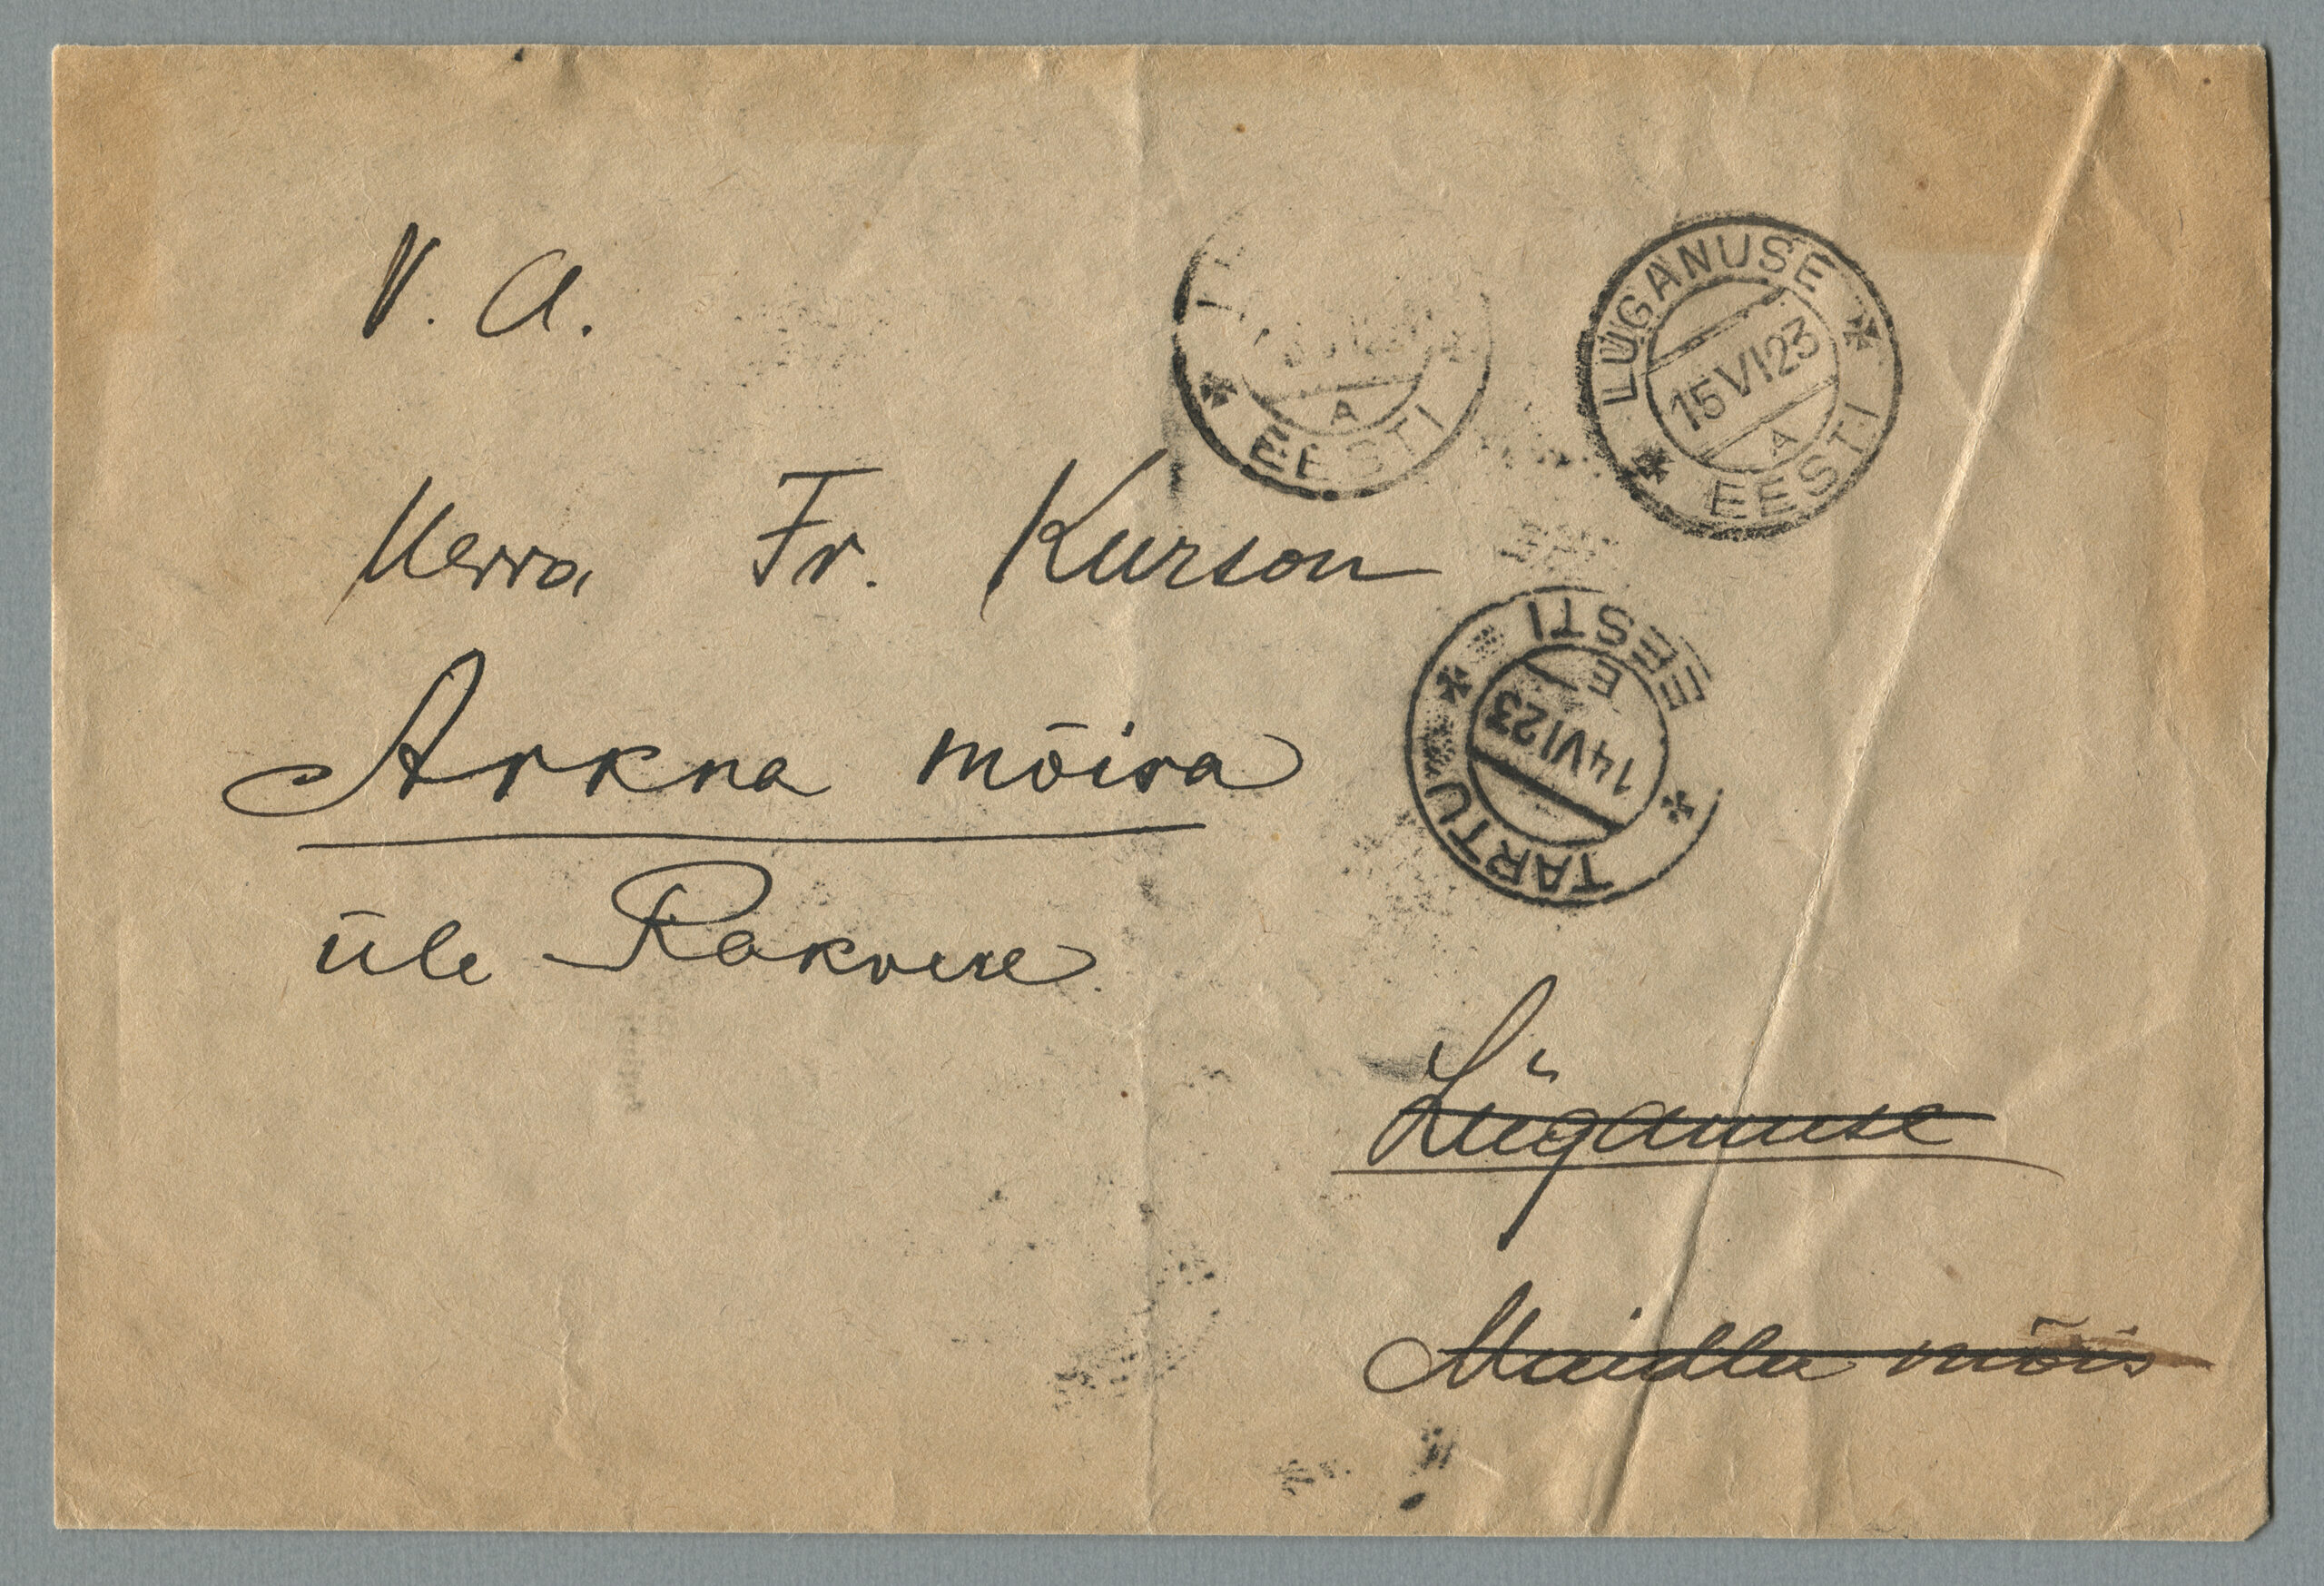 V. A.
EESTI
A
LUGANUSE
15 VI 23
A
EESTI
Herra Fr. Kurson
EESTI
E
14 VI 23
TARTU
Arkna mõisa
üle Rakvere.
Lüganuse
Maidla mõis